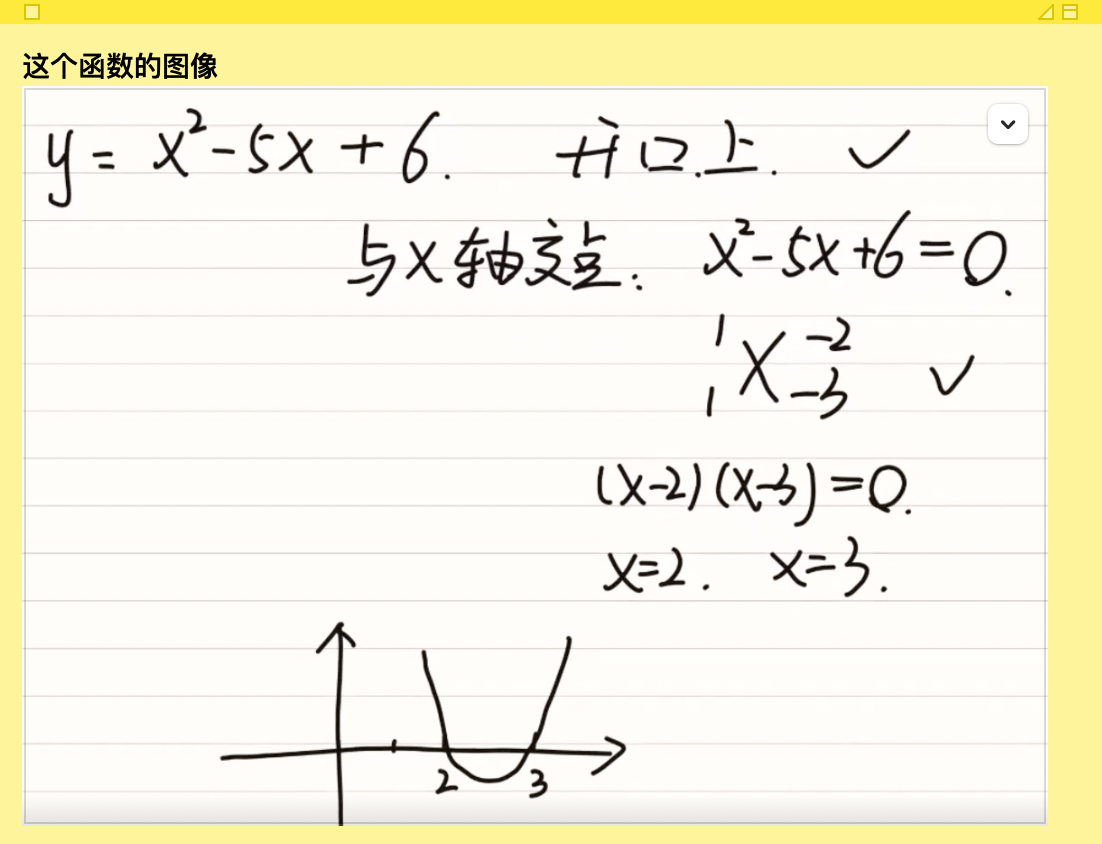 这个函数的图像
y = x² - 5x + 6. 开口上. ✓
与x轴交点: x² - 5x + 6 = 0.
1 -2
1 X -3 ✓
(x-2)(x-3)=0.
x=2. x=3.
2 3